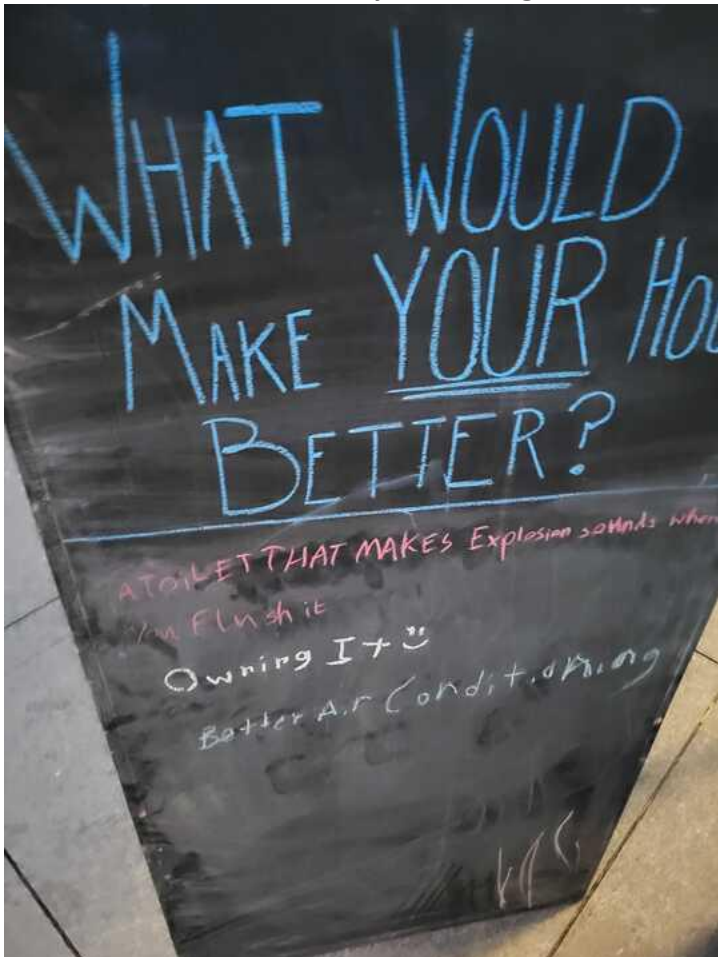 WHAT WOULD
MAKE YOUR HOU
BETTER?
A TOiLET THAT MAKES Explosion sounds when
You Flush it
Owning It
Better Air Conditioning